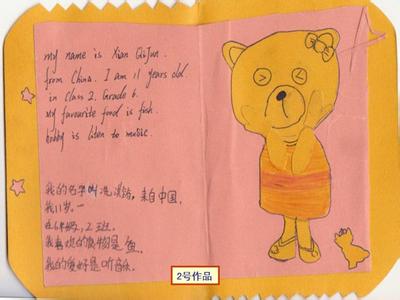 my name is Xian QiJun.
from China. I am 11 years old.
in Class 2. Grade 6.
My favourite food is fish.
hobby is liten to music.
我的名字叫冼淇 ,来自中国.
我11岁.
在6年级,2班.
我喜欢的食物是鱼.
我的爱好是听音乐.
2号作品